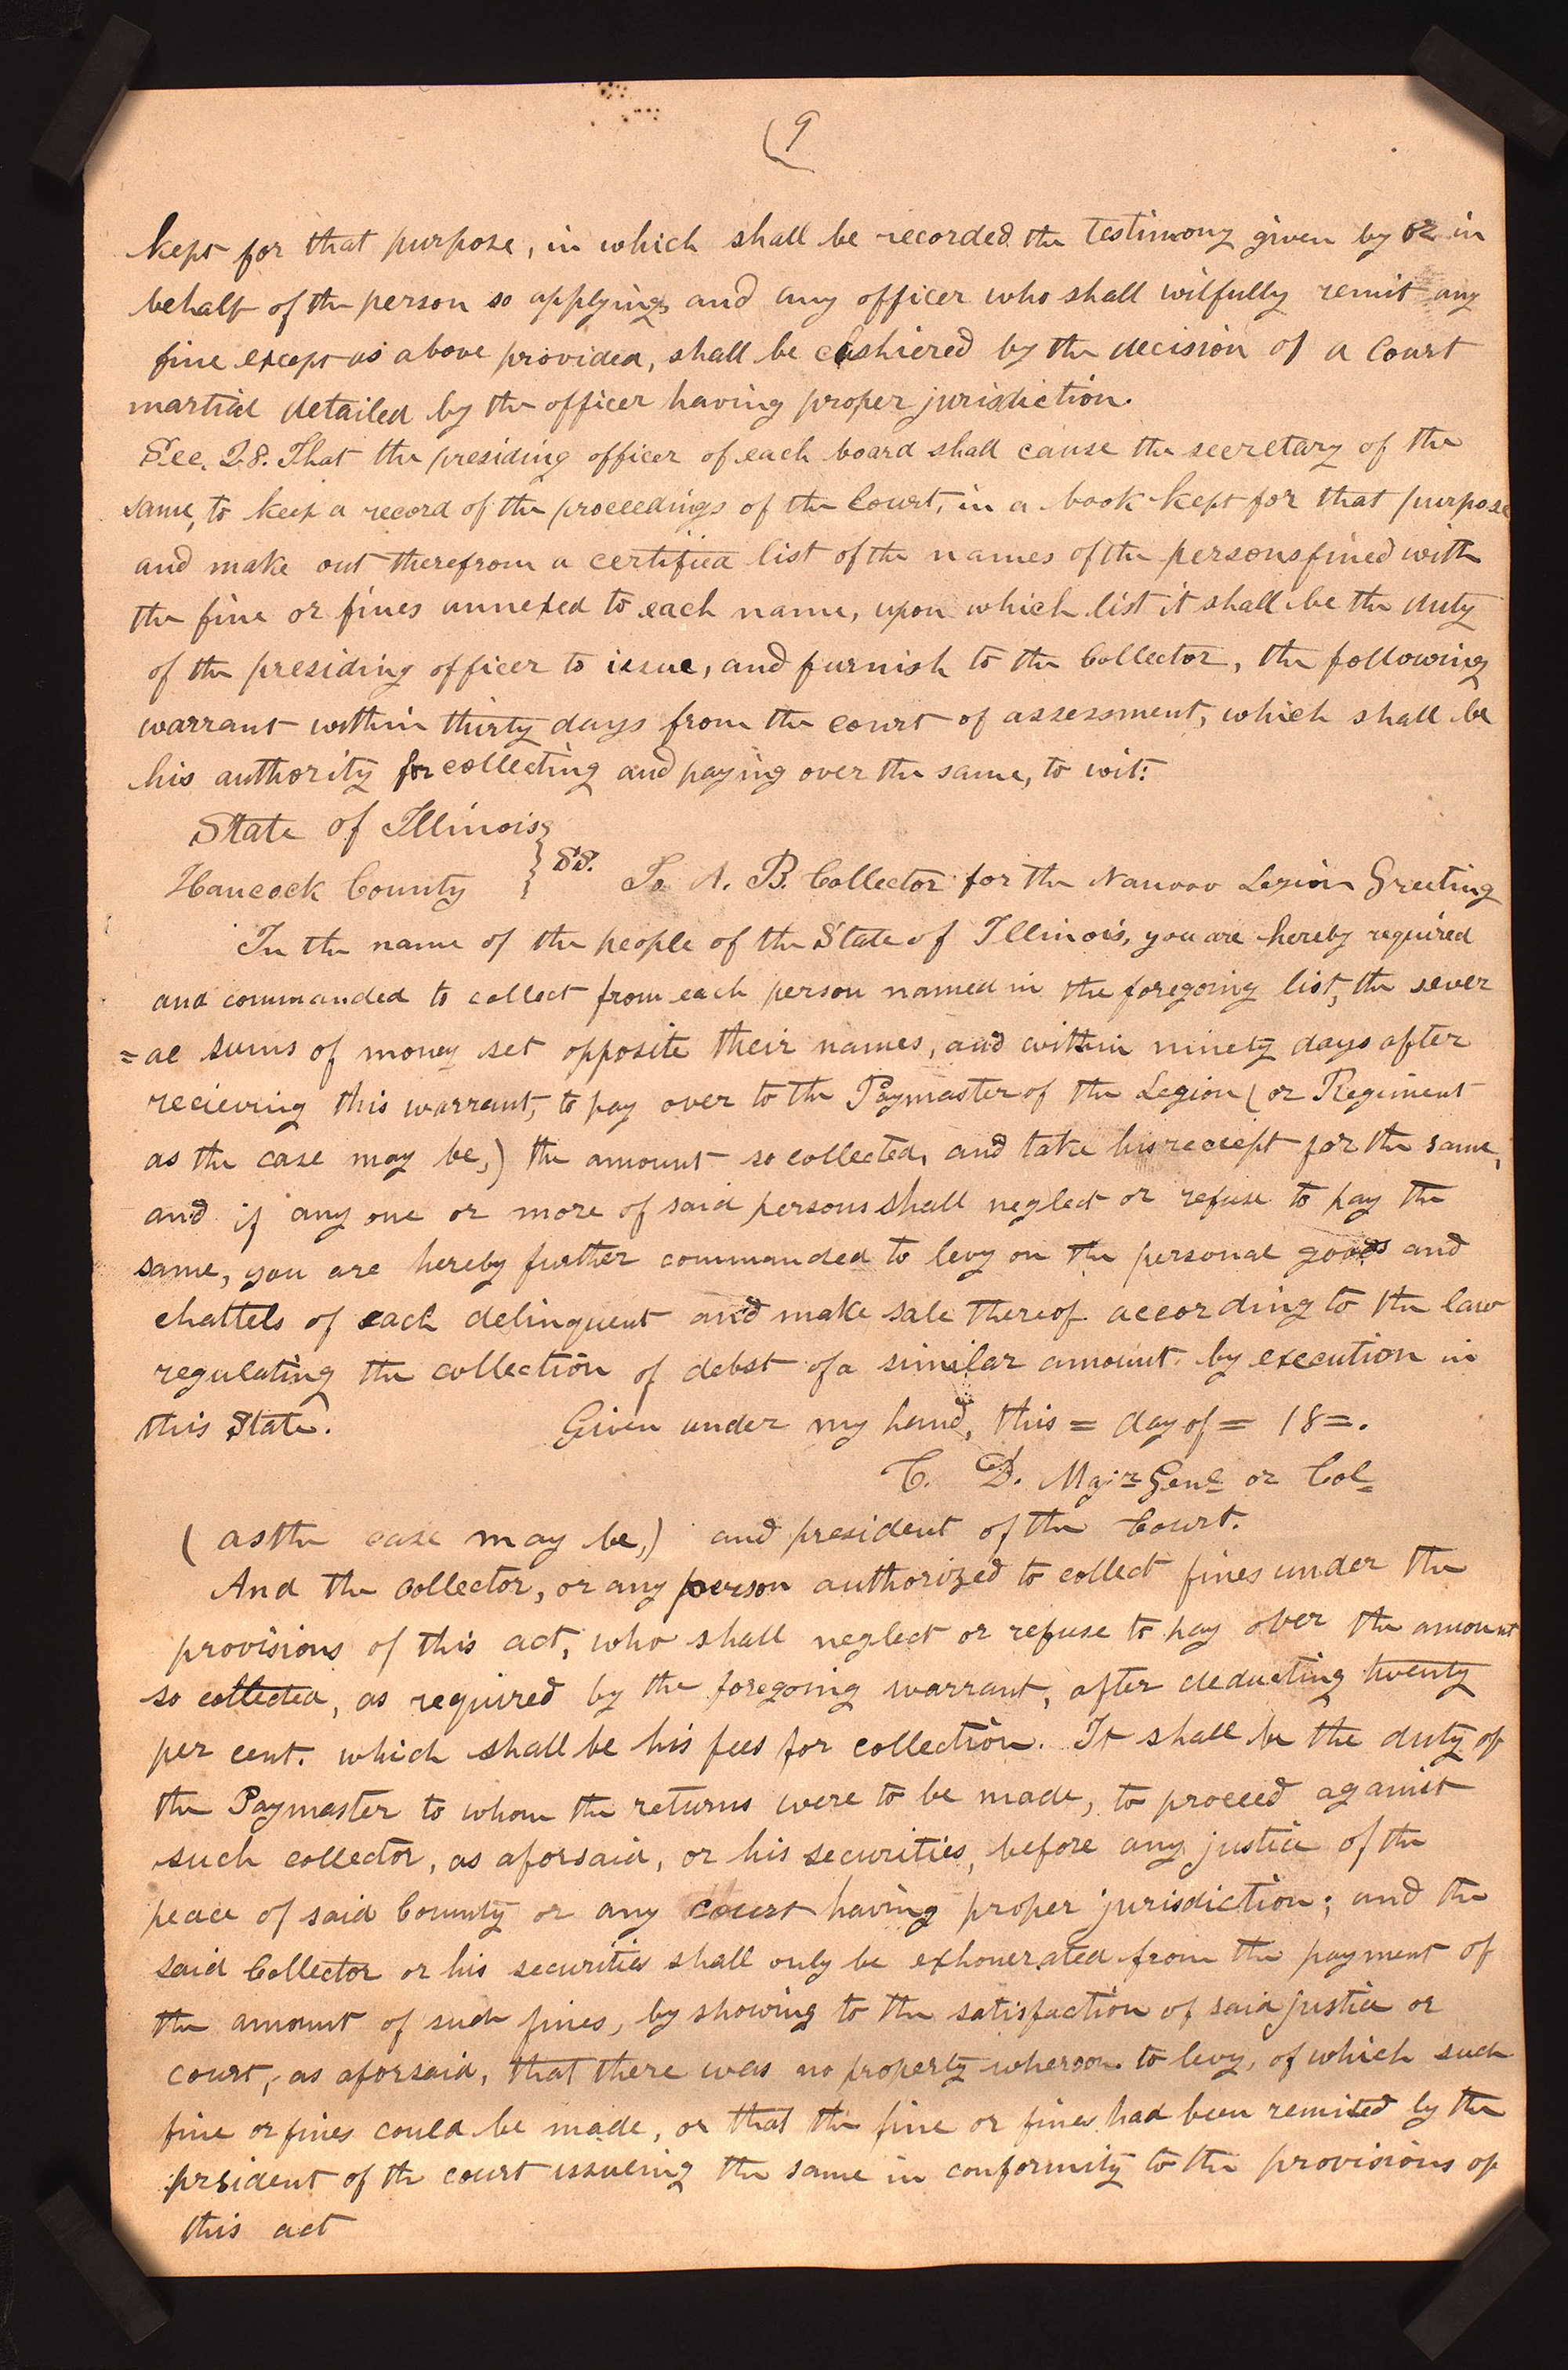 (9
kept for that purpose, in which shall be recorded the testimony given by or in
behalf of the person so applying, and any officer who shall wilfully remit any
fine except as above provided, shall be cashiered by the decision of a Court
martial detailed by the officer having proper jurisdiction.
Sec. 28. That the presiding officer of each board shall cause the secretary of the
same, to keep a record of the proceedings of the Court, in a book kept for that purpose
and make out therefrom a certified list of the names of the persons fined with
the fine or fines annexed to each name, upon which list it shall be the duty
of the presiding officer to issue, and furnish to the Collector, the following
warrant within thirty days from the court of assessment, which shall be
his authority for collecting and paying over the same, to wit:
State of Illinois
Hancock County } SS. To A. B. Collector for the Nauvoo Legion Greeting
In the name of the people of the State of Illinois, you are hereby required
and commanded to collect from each person named in the foregoing list, the sever
=al sums of money set opposite their names, and within ninety days after
recieving this warrant, to pay over to the Paymaster of the Legion (or Regiment
as the case may be,) the amount so collected, and take his reciept for the same,
and if any one or more of said persons shall neglect or refuse to pay the
same, you are hereby further commanded to levy on the personal goods and
chattels of each delinquent and make sale thereof according to the law
regulating the collection of debst of a similar amount by execution in
this State. Given under my hand, this = day of = 18=.
C. D. Majr Genl or Col
(as the case may be,) and president of the Court.
And the collector, or any person authorized to collect fines under the
provisions of this act, who shall neglect or refuse to pay over the amount
so collected, as required by the foregoing warrant, after deducting twenty
per cent. which shall be his fees for collection. It shall be the duty of
the Paymaster to whom the returns were to be made, to proceed against
such collector, as aforsaid, or his securities, before any justice of the
peace of said County or any court having proper jurisdiction; and the
said Collector or his securities shall only be exhonerated from the payment of
the amount of such fines, by showing to the satisfaction of said justice or
court, as aforsaid, that there was no property wheroon to levy, of which such
fine or fines could be made, or that the fine or fines had been remited by the
prsident of the court issueing the same in conformity to the provisions of
this act